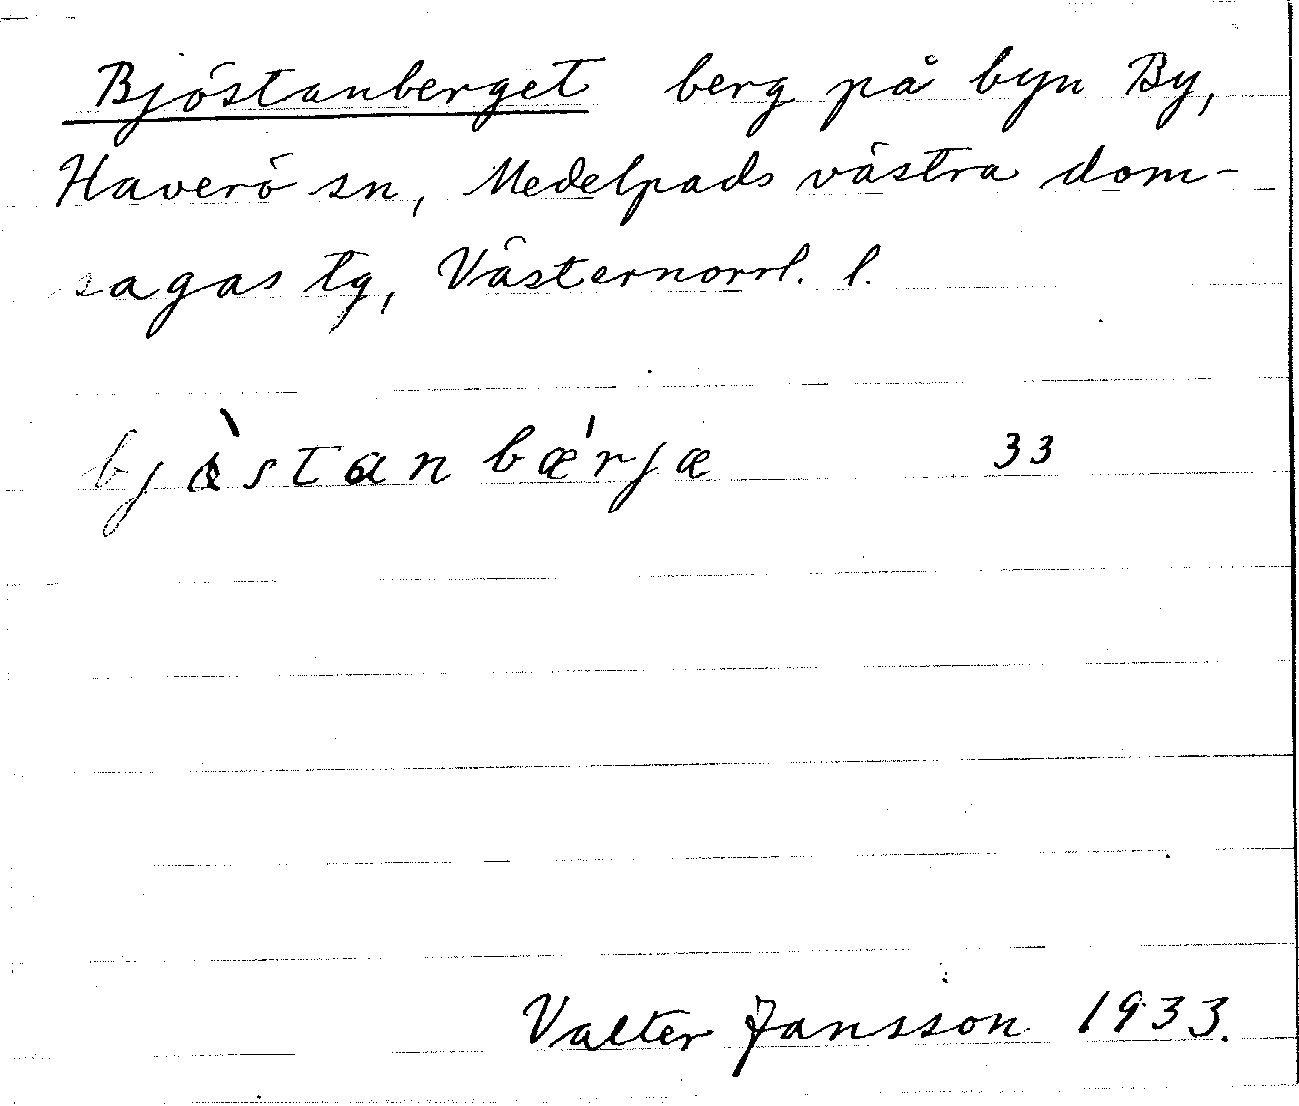 Bjöstanberget berg på byn By,
Haverö sn, Medelpads västra dom-
sagas tg, Västernorrl. l.
bjöstanbærjæ 33
Valter Jansson 1933.